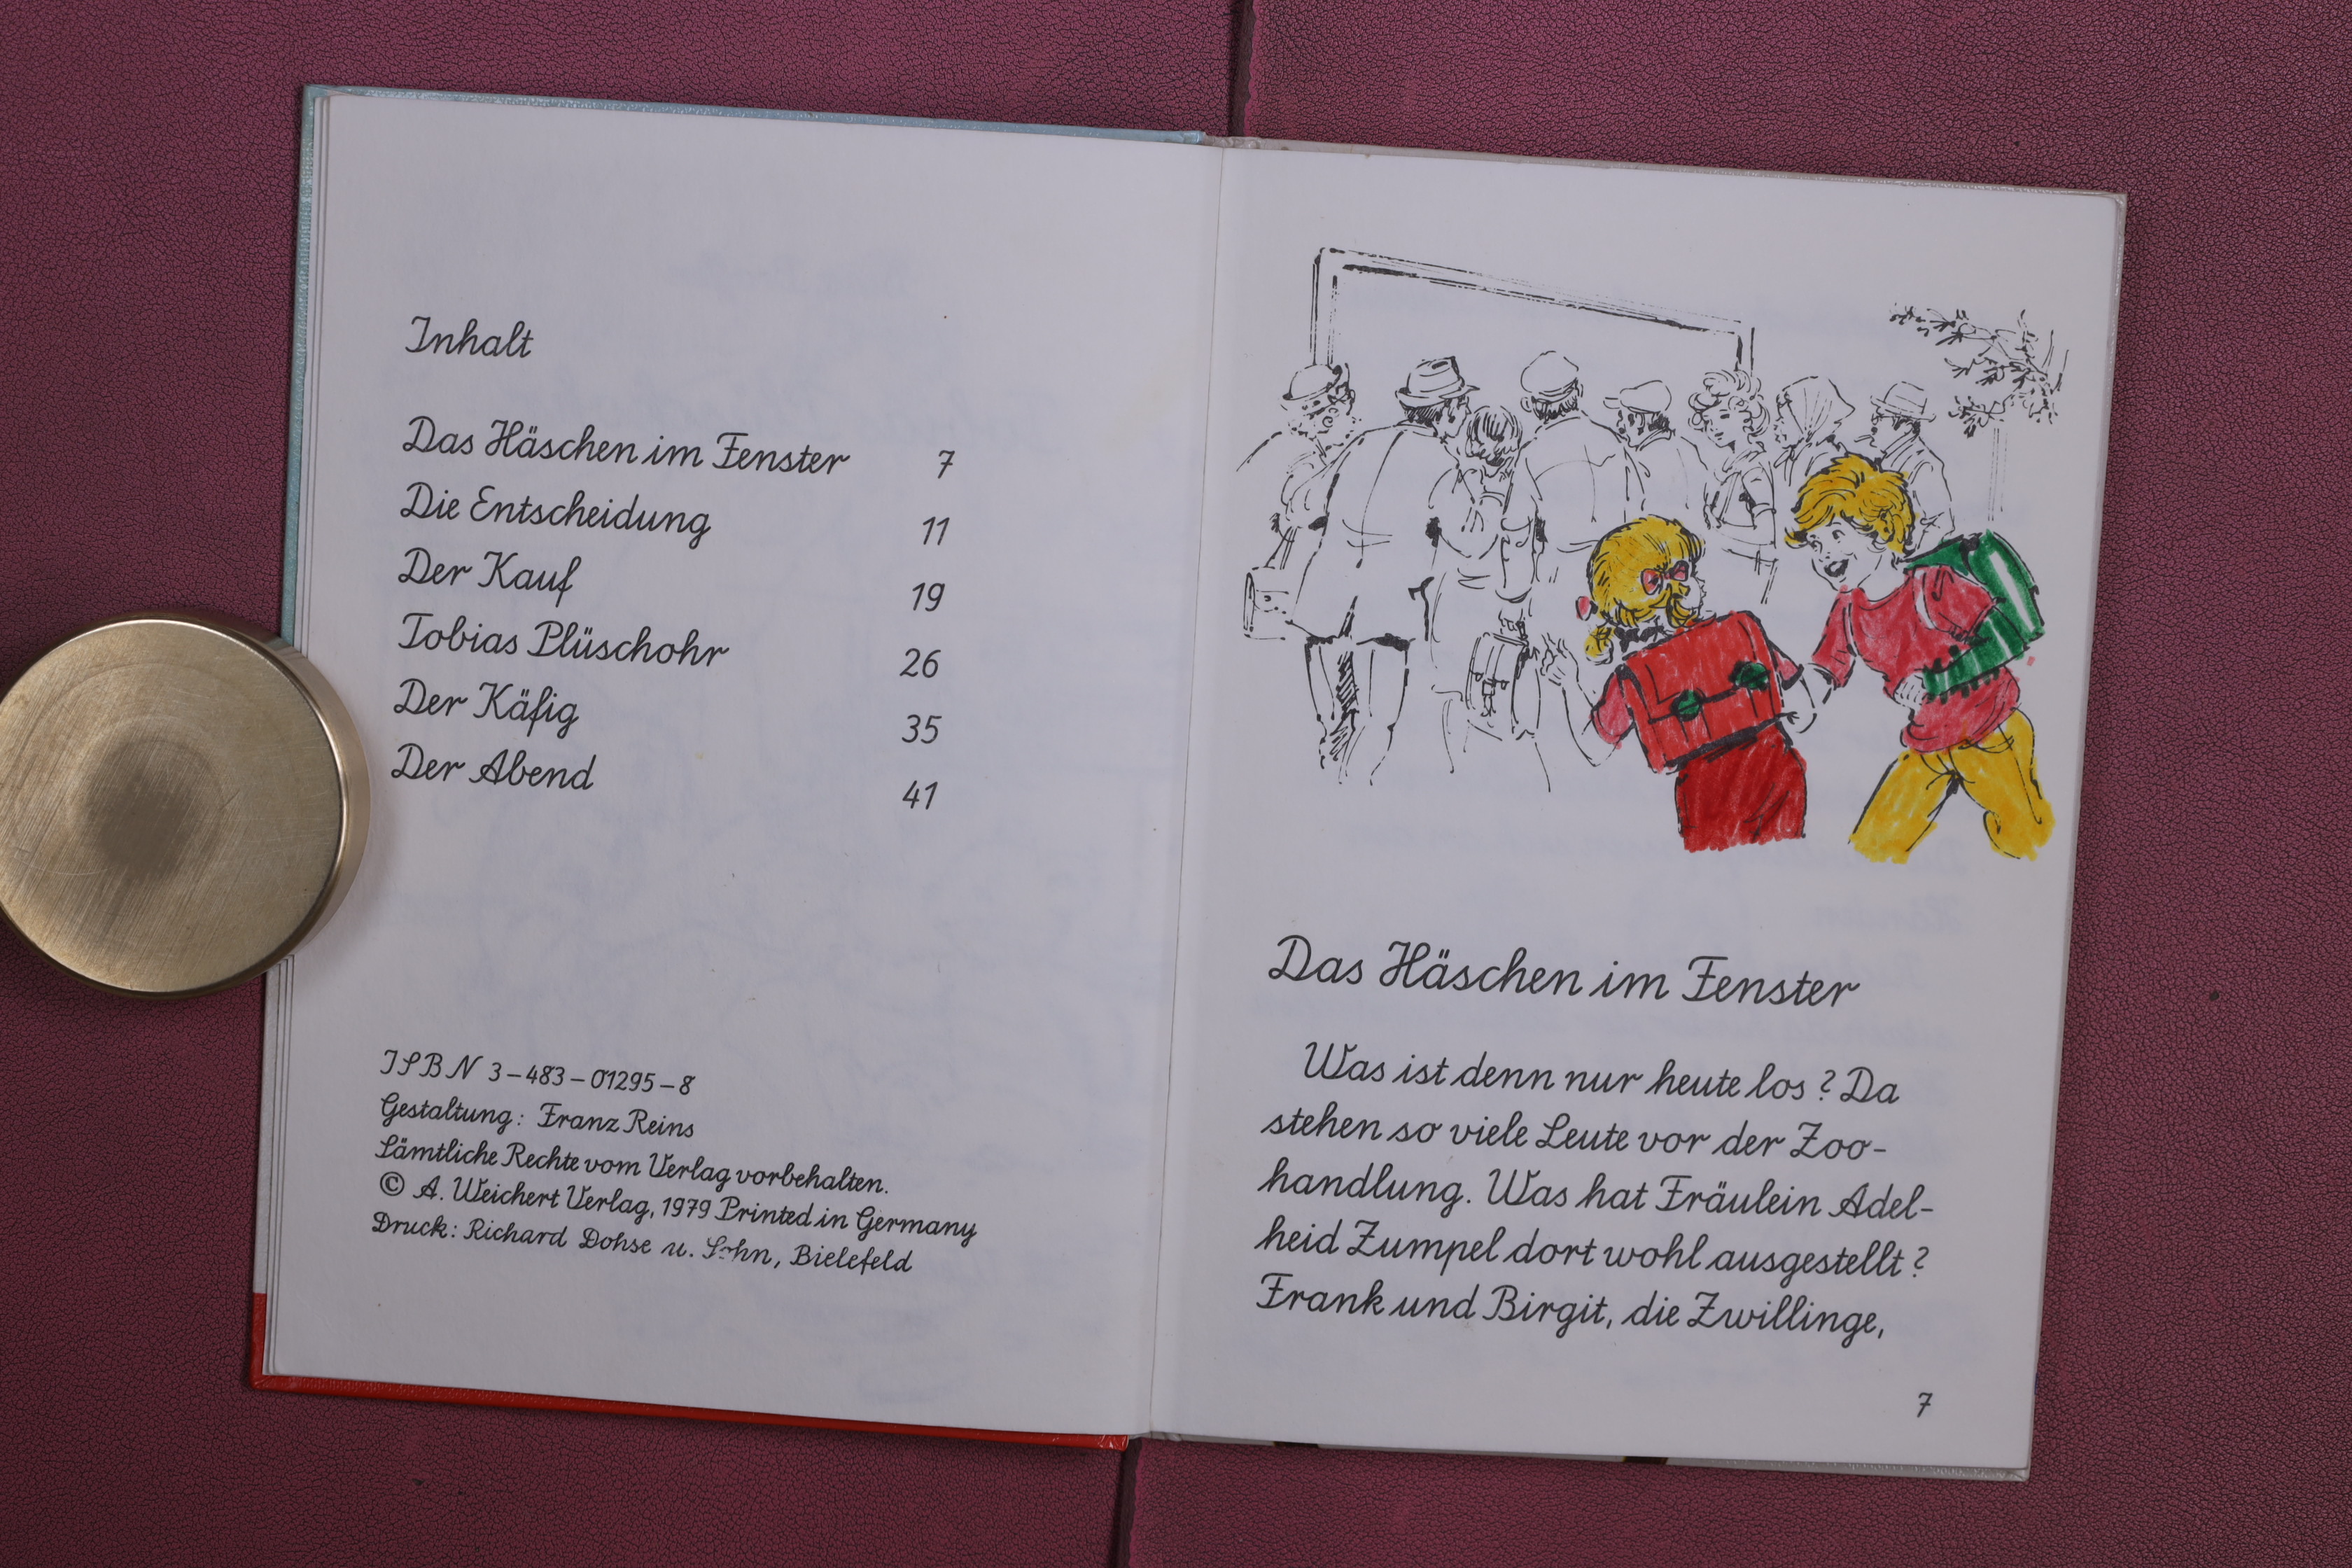 Inhalt
Das Häschen im Fenster 7
Die Entscheidung 11
Der Kauf 19
Tobias Plüschohr 26
Der Käfig 35
Der Abend 41
ISBN 3-483-01295-8
Gestaltung: Franz Reins
Sämtliche Rechte vom Verlag vorbehalten.
© A. Weichert Verlag, 1979 Printed in Germany
Druck: Richard Dohse u. Sohn, Bielefeld
Das Häschen im Fenster
Was ist denn nur heute los? Da
stehen so viele Leute vor der Zoo-
handlung. Was hat Fräulein Adel-
heid Zumpel dort wohl ausgestellt?
Frank und Birgit, die Zwillinge,
7